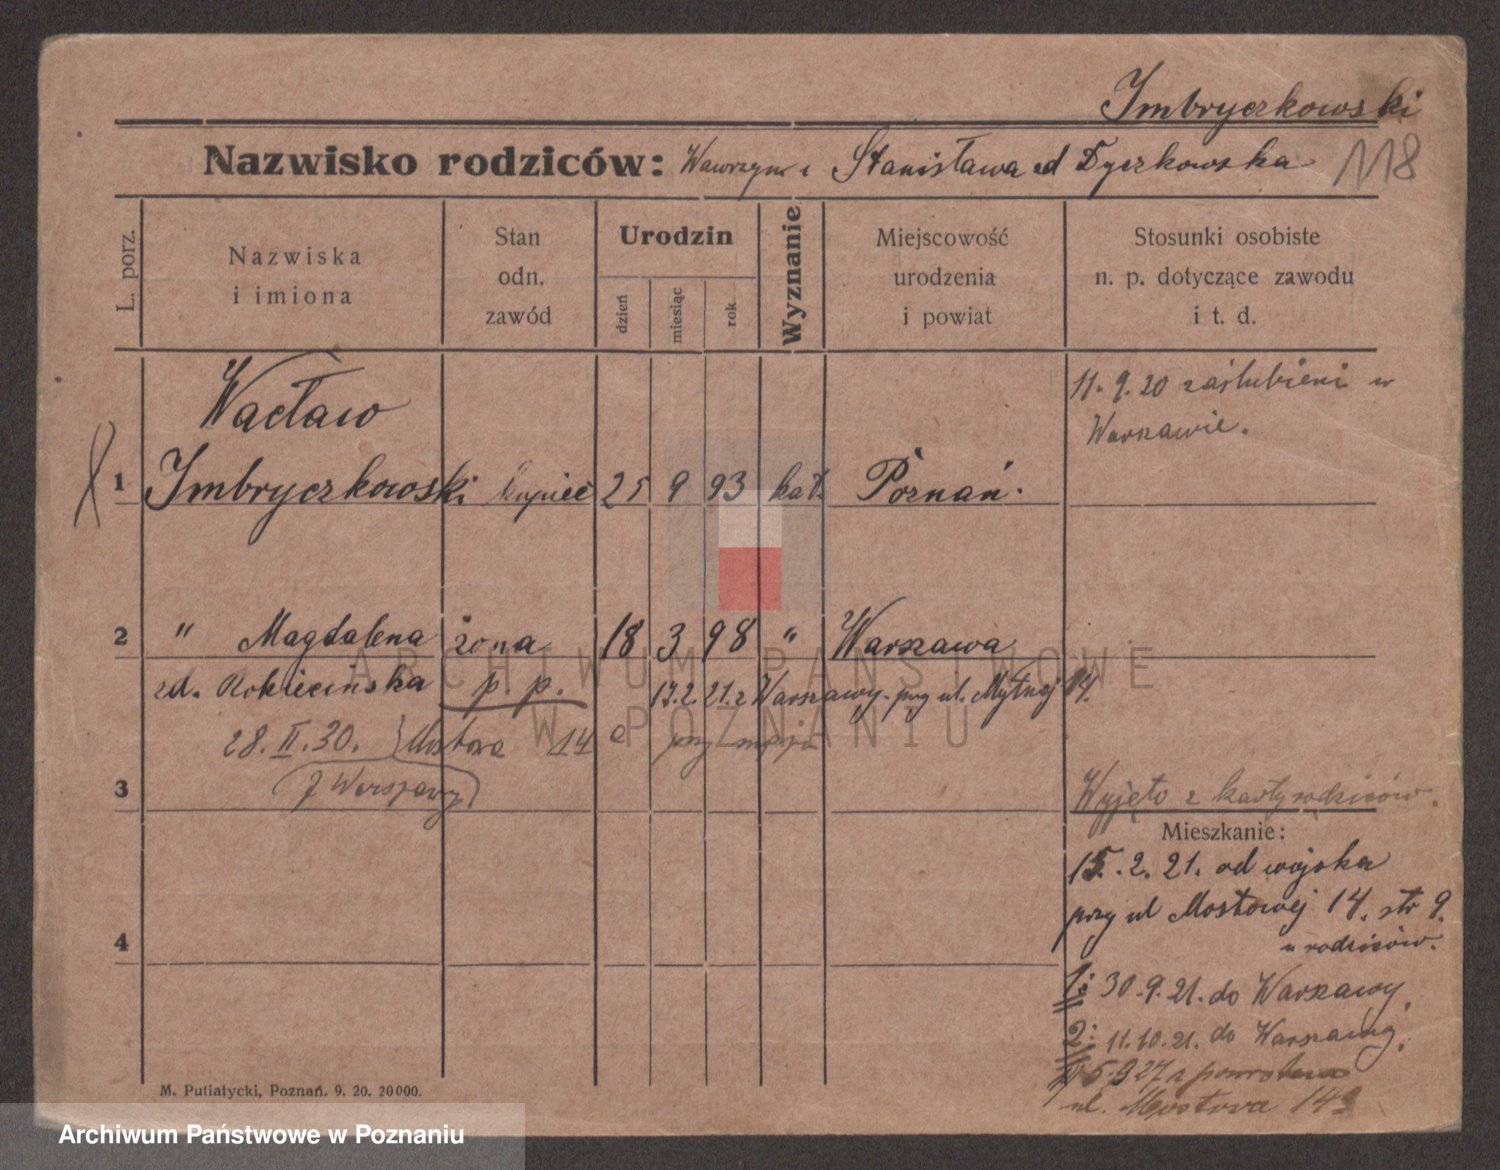 Imbryczkowski
Nazwisko rodziców: Wawrzyn i Stanisława zd Dyczkowska 118
L. porz.
Nazwiska
i imiona
Stan
odn.
zawód
Urodzin
dzień
miesiąc
rok
Wyznanie
Miejscowość
urodzenia
i powiat
Stosunki osobiste
n. p. dotyczące zawodu
i t. d.
11. 9. 20 zaślubieni w
Warszawie.
Wacław
1 Imbryczkowski kupiec 25 9 93 kat. Poznań.
2 " Magdalena żona 18 3 98 " Warszawa
zd. Rokiecińska p. p. 17.2.21. z Warszawy. przy ul. Mytnej 14.
28. II. 30. Mostowa 14 a przy mężu
z Warszawy
3
Wyjęto z karty rodziców.
Mieszkanie:
15. 2. 21. od wojska
przy ul Mostowej 14. str 9.
u rodziców.
4
1: 30. 9. 21. do Warszawy.
2: 11. 10. 21. do Warszawy.
5.9 27 z powrotem
ul. Mostowa 14a
M. Putiatycki, Poznań. 9. 20. 20000.
ARCHIWUM PAŃSTWOWE
W POZNANIU
Archiwum Państwowe w Poznaniu